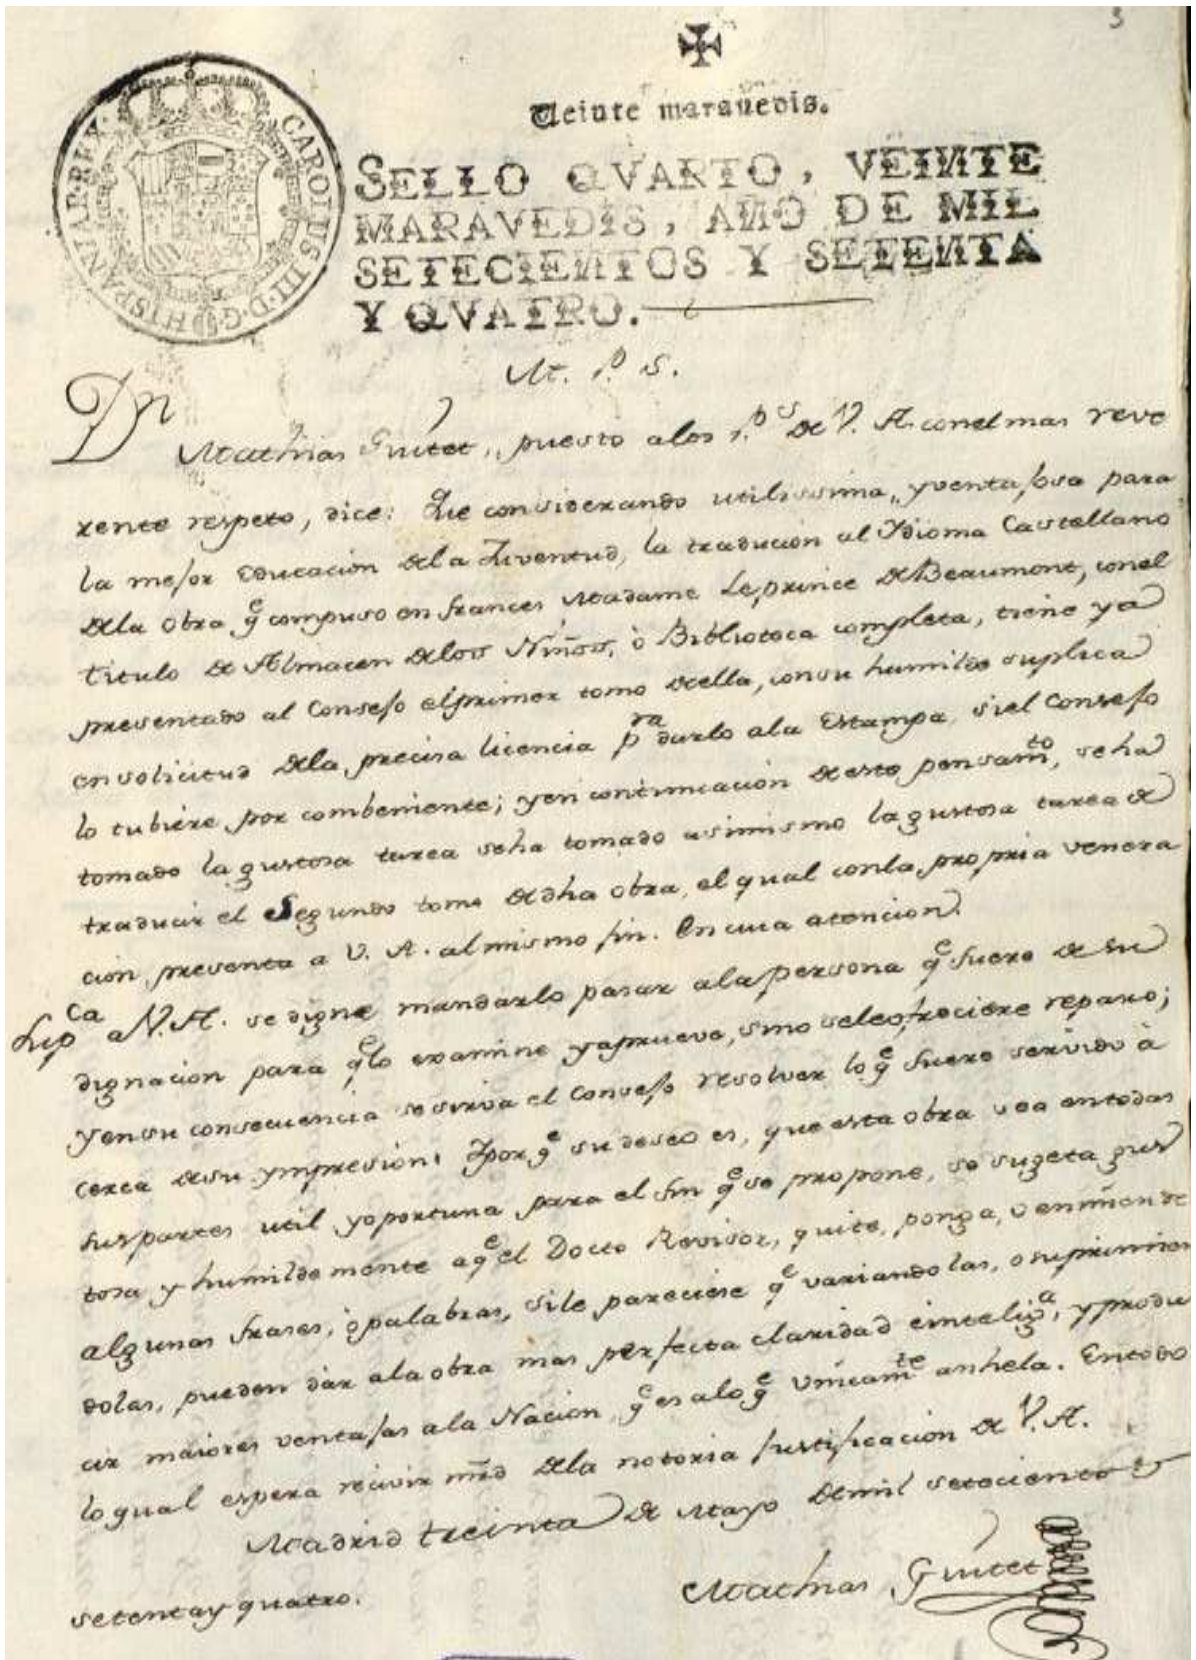 3
Veinte maravedis.
CAROLUS III·D·G·HISPANIAR·REX·
SELLO QVARTO, VEINTE
MARAVEDIS, AÑO DE MIL
SETECIENTOS Y SETENTA
Y QVATRO.
M. P. S.
Dn Mathias Guitet, puesto a los Ps. de V. A. con el mas reve
rente respeto, dice: Que considerando utilissima, y ventajosa para
la mejor Educacion de la Juventud, la traducion al Ydioma Castellano
de la Obra qe compuso en frances Madame Le prince de Beaumont, con el
titulo de Almacen de los Niños, ò Biblioteca completa, tiene ya
presentado al Consejo el primer tomo de ella, con su humilde suplica
en solicitud de la precisa licencia pra darlo a la Estampa, si el Consejo
lo tubiere por combeniente; y en continuacion de este pensamto, se ha
tomado la gustosa tarea se ha tomado asimismo la gustosa tarea de
traducir el Segundo tomo de dha obra, el qual con la propria venera
cion presenta a V. A. al mismo fin. En cuia atencion.
Supca a V. A. se digne mandarlo pasar a la persona qe fuere de su
dignacion para qe lo examine y aprueve, sino se le ofreciere reparo;
y en su consecuencia se sirva el Consejo resolver lo qe fuere servido à
cerca de su ympresion: Y por qe su deseo es, que esta obra sea en todas
sus partes util y oportuna para el fin qe se propone, se sugeta gus
tosa y humildemente a qe el Docto Revisor, quite, ponga, o enmiende
algunas frases, ò palabras, si le pareciere qe variandolas, o suprimien
dolas, pueden dár a la obra mas perfecta claridad e inteliga, y produ
cir maiores ventajas a la Nacion, qe es a lo qe unicamte anhela. En todo
lo qual espera recivir mrd de la notoria justificacion de V. A.
Madrid treinta de Mayo de mil setecientos
setenta y quatro.
Mathias Guitet